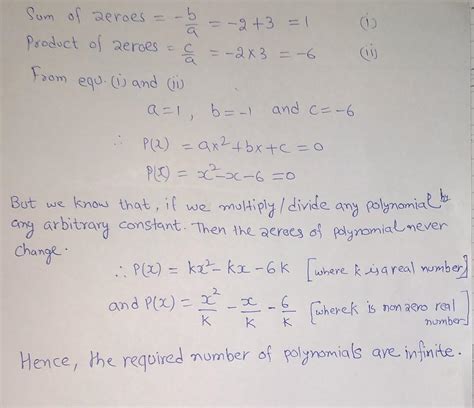 Sum of zeroes = -b/a = -2+3 = 1 (i)
Product of zeroes = c/a = -2×3 = -6 (ii)
From equ. (i) and (ii)
a=1, b=-1 and c=-6
∴ P(x) = ax²+bx+c=0
P(x) = x²-x-6=0
But we know that, if we multiply/divide any polynomial by
any arbitrary constant. Then the zeroes of polynomial never
change.
∴ P(x) = kx²-kx-6k [where k is a real number]
and P(x) = x²/k - x/k - 6/k [where k is non zero real
number]
Hence, the required number of polynomials are infinite.